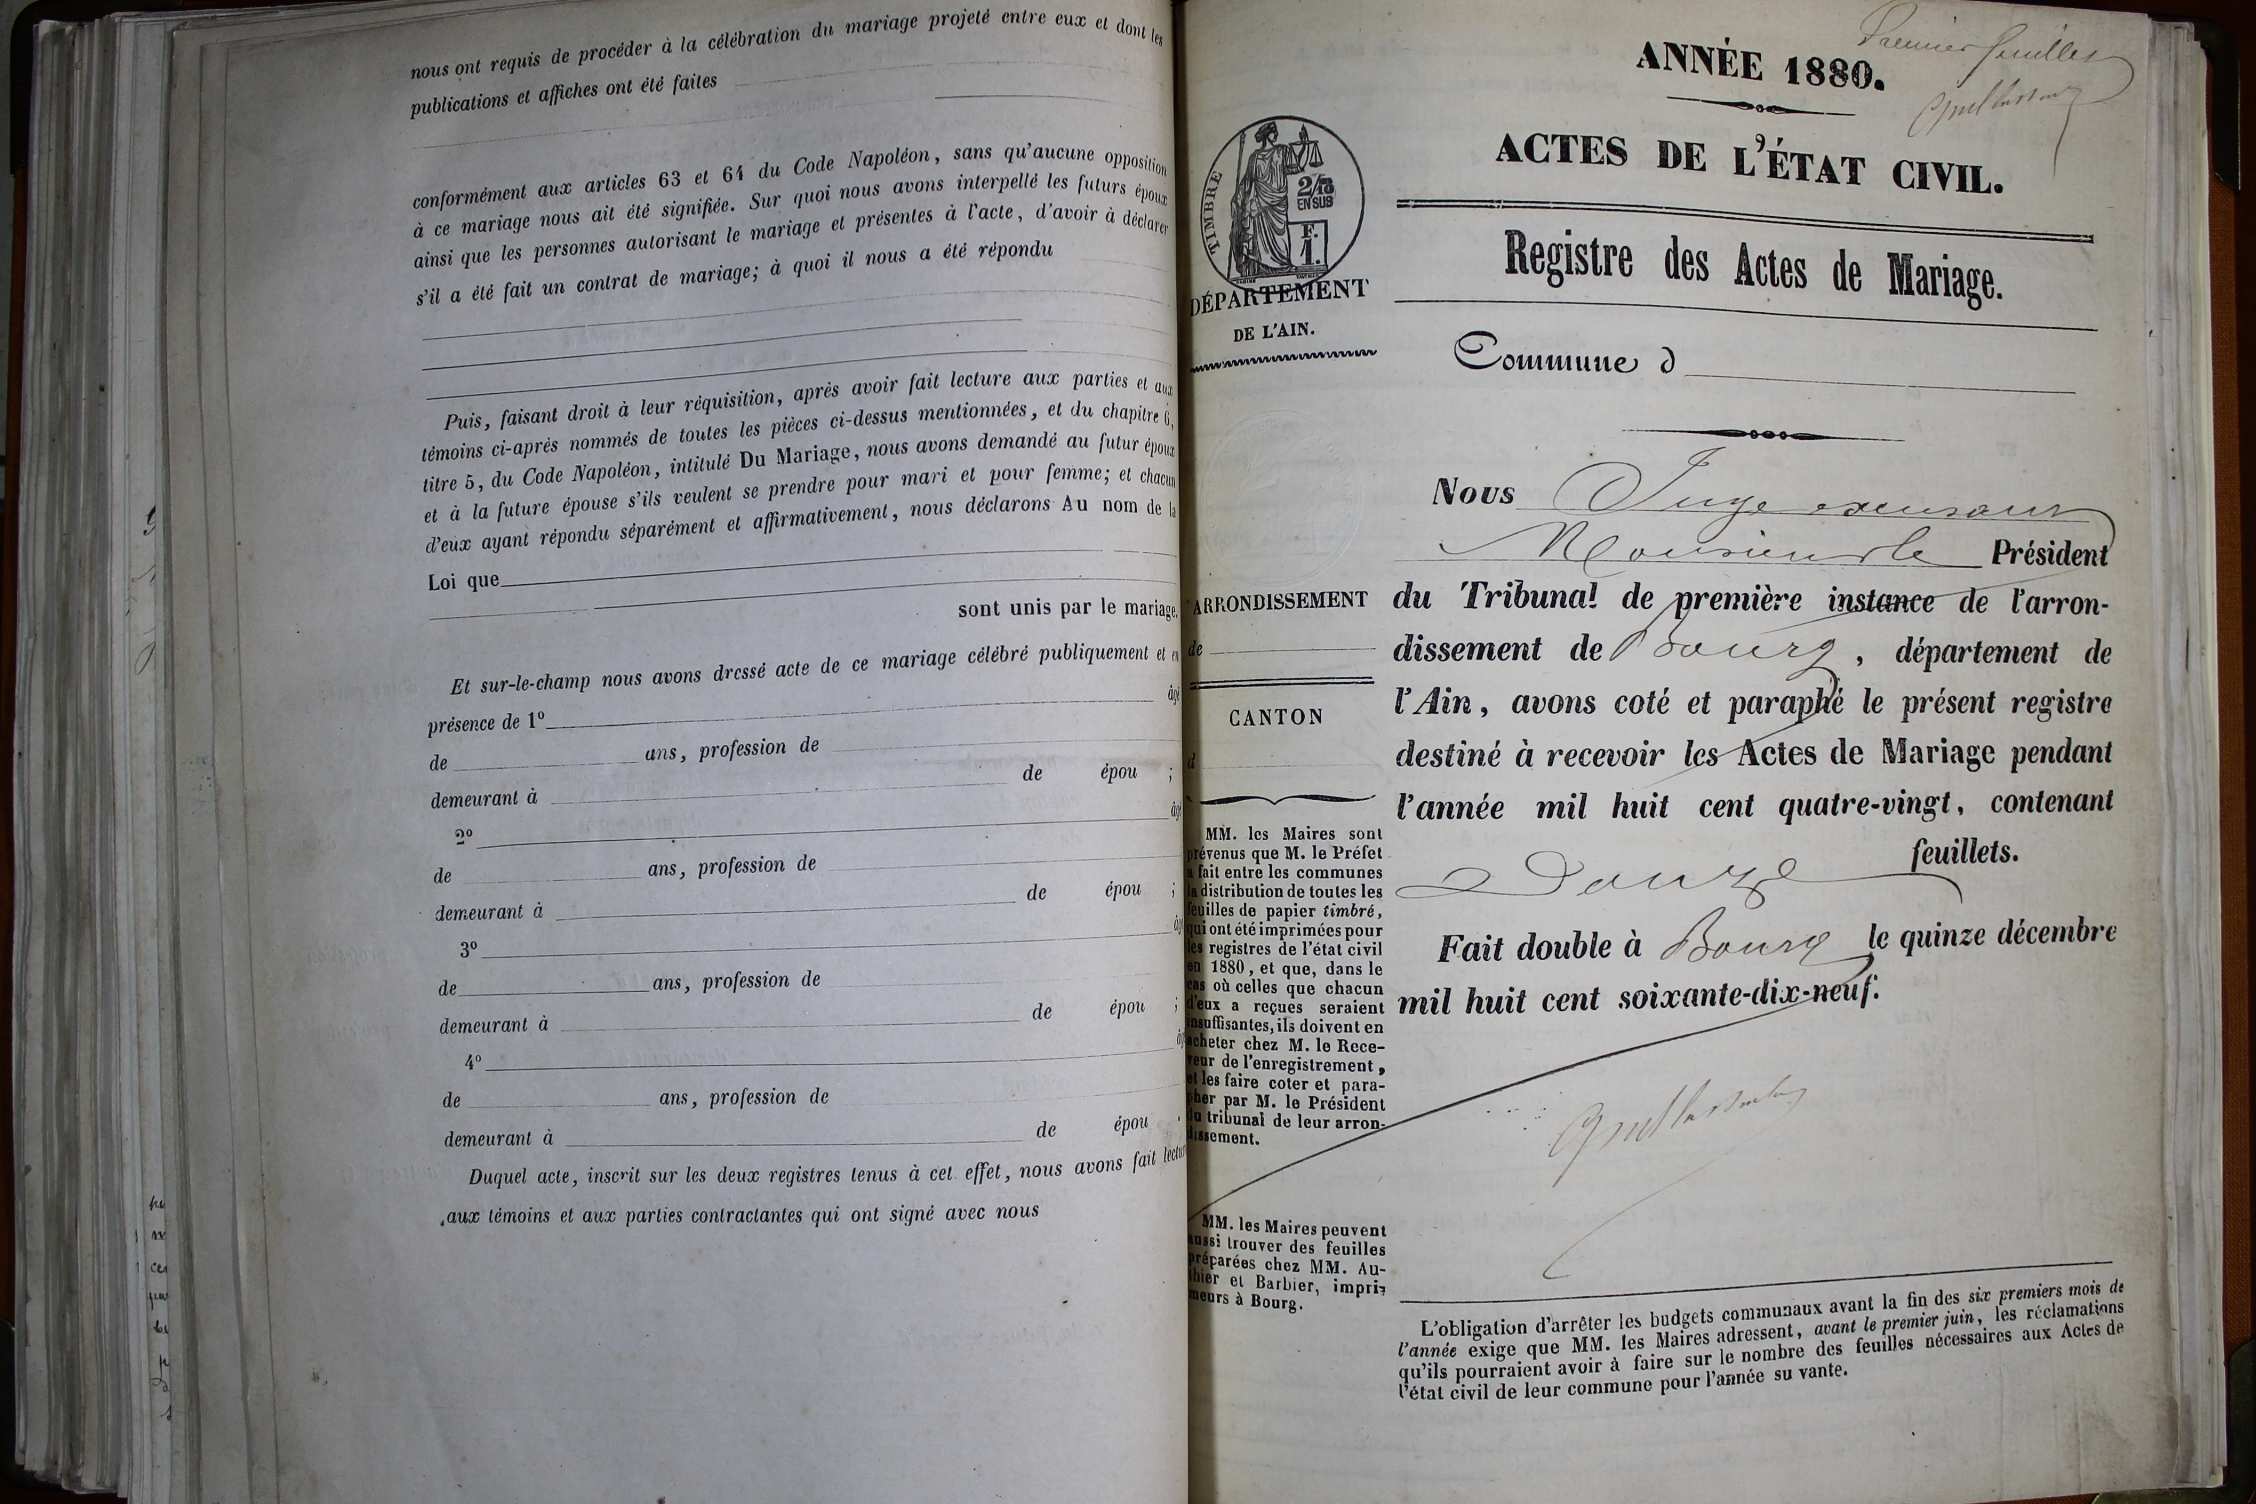 nous ont requis de procéder à la célébration du mariage projeté entre eux et dont les
publications et affiches ont été faites
conformément aux articles 63 et 64 du Code Napoléon, sans qu'aucune opposition
à ce mariage nous ait été signifiée. Sur quoi nous avons interpellé les futurs époux
ainsi que les personnes autorisant le mariage et présentes à l'acte, d'avoir à déclarer
s'il a été fait un contrat de mariage; à quoi il nous a été répondu
Puis, faisant droit à leur réquisition, après avoir fait lecture aux parties et aux
témoins ci-après nommés de toutes les pièces ci-dessus mentionnées, et du chapitre 6,
titre 5, du Code Napoléon, intitulé Du Mariage, nous avons demandé au futur époux
et à la future épouse s'ils veulent se prendre pour mari et pour femme; et chacun
d'eux ayant répondu séparément et affirmativement, nous déclarons Au nom de la
Loi que
sont unis par le mariage.
Et sur-le-champ nous avons dressé acte de ce mariage célébré publiquement et en
présence de 1º âgé
de ans, profession de
demeurant à de épou ;
2º âgé
de ans, profession de
demeurant à de épou ;
3º âgé
de ans, profession de
demeurant à de épou ;
4º âgé
de ans, profession de
demeurant à de épou
Duquel acte, inscrit sur les deux registres tenus à cet effet, nous avons fait lecture
aux témoins et aux parties contractantes qui ont signé avec nous
Premier feuillet
ANNÉE 1880.
ACTES DE L'ÉTAT CIVIL.
Registre des Actes de Mariage.
TIMBRE
2/10
EN SUS
F.
1.
DÉPARTEMENT
DE L'AIN.
ARRONDISSEMENT
de
CANTON
d
MM. les Maires sont
prévenus que M. le Préfet
a fait entre les communes
la distribution de toutes les
feuilles de papier timbré,
qui ont été imprimées pour
les registres de l'état civil
en 1880, et que, dans le
cas où celles que chacun
d'eux a reçues seraient
insuffisantes, ils doivent en
acheter chez M. le Rece-
veur de l'enregistrement,
et les faire coter et para-
pher par M. le Président
du tribunal de leur arron-
dissement.
MM. les Maires peuvent
aussi trouver des feuilles
préparées chez MM. Au-
thier et Barbier, impri-
meurs à Bourg.
Commune d
Nous Juge excusant
Monsieur le Président
du Tribunal de première instance de l'arron-
dissement de Bourg, département de
l'Ain, avons coté et paraphé le présent registre
destiné à recevoir les Actes de Mariage pendant
l'année mil huit cent quatre-vingt, contenant
Douze feuillets.
Fait double à Bourg le quinze décembre
mil huit cent soixante-dix-neuf.
L'obligation d'arrêter les budgets communaux avant la fin des six premiers mois de
l'année exige que MM. les Maires adressent, avant le premier juin, les réclamations
qu'ils pourraient avoir à faire sur le nombre des feuilles nécessaires aux Actes de
l'état civil de leur commune pour l'année su vante.